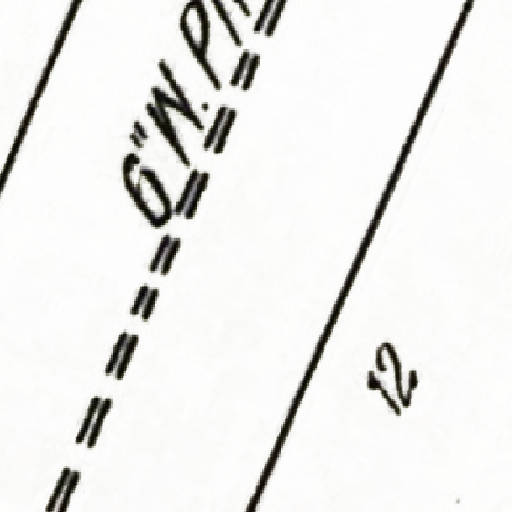 6" W. PI
12